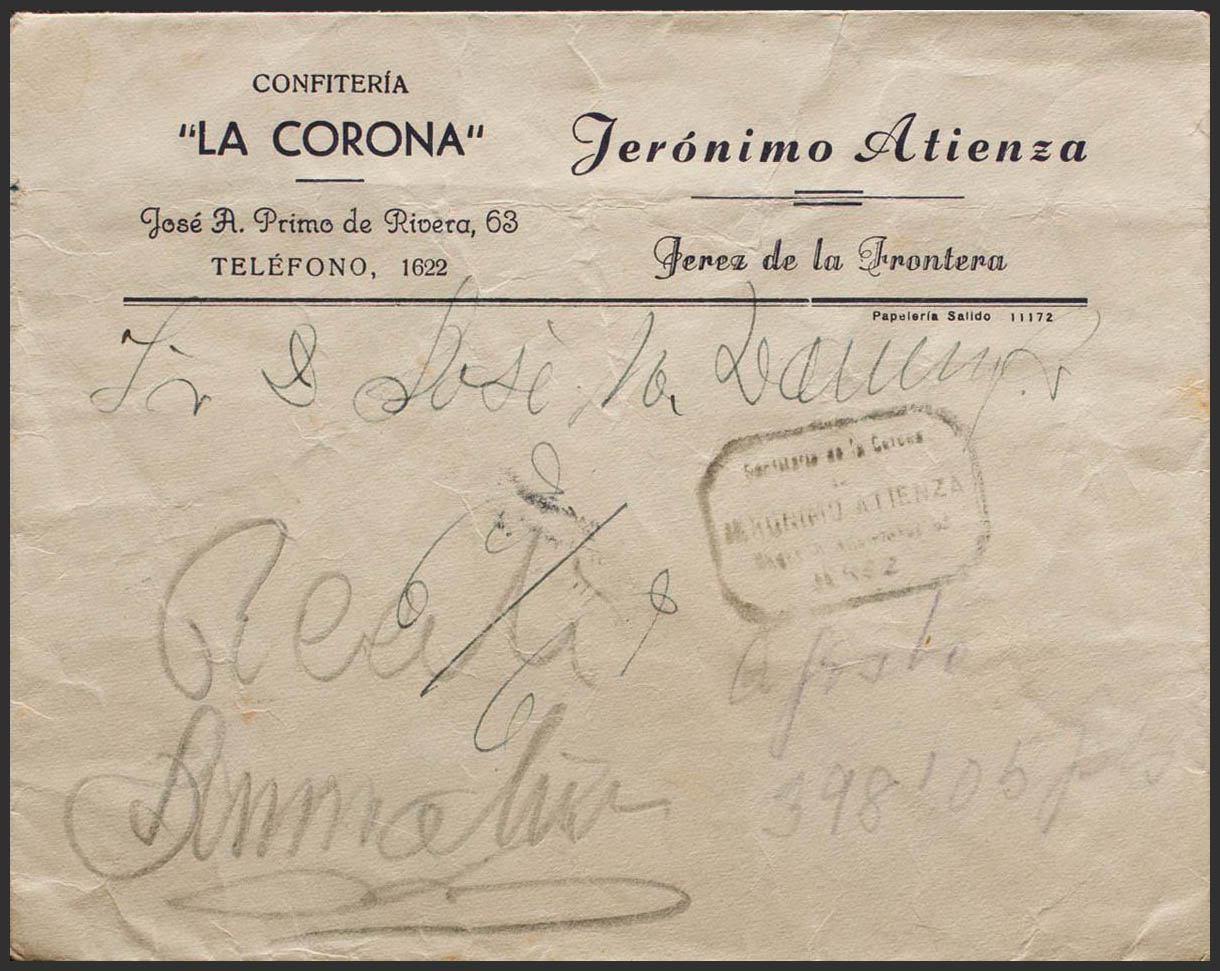 CONFITERÍA
"LA CORONA"
José A. Primo de Rivera, 63
TELÉFONO, 1622
Jerónimo Atienza
Jerez de la Frontera
Papelería Salido 11172
Sr D José Ma
de la Corona
ATIENZA
Agosto
398'05 pts